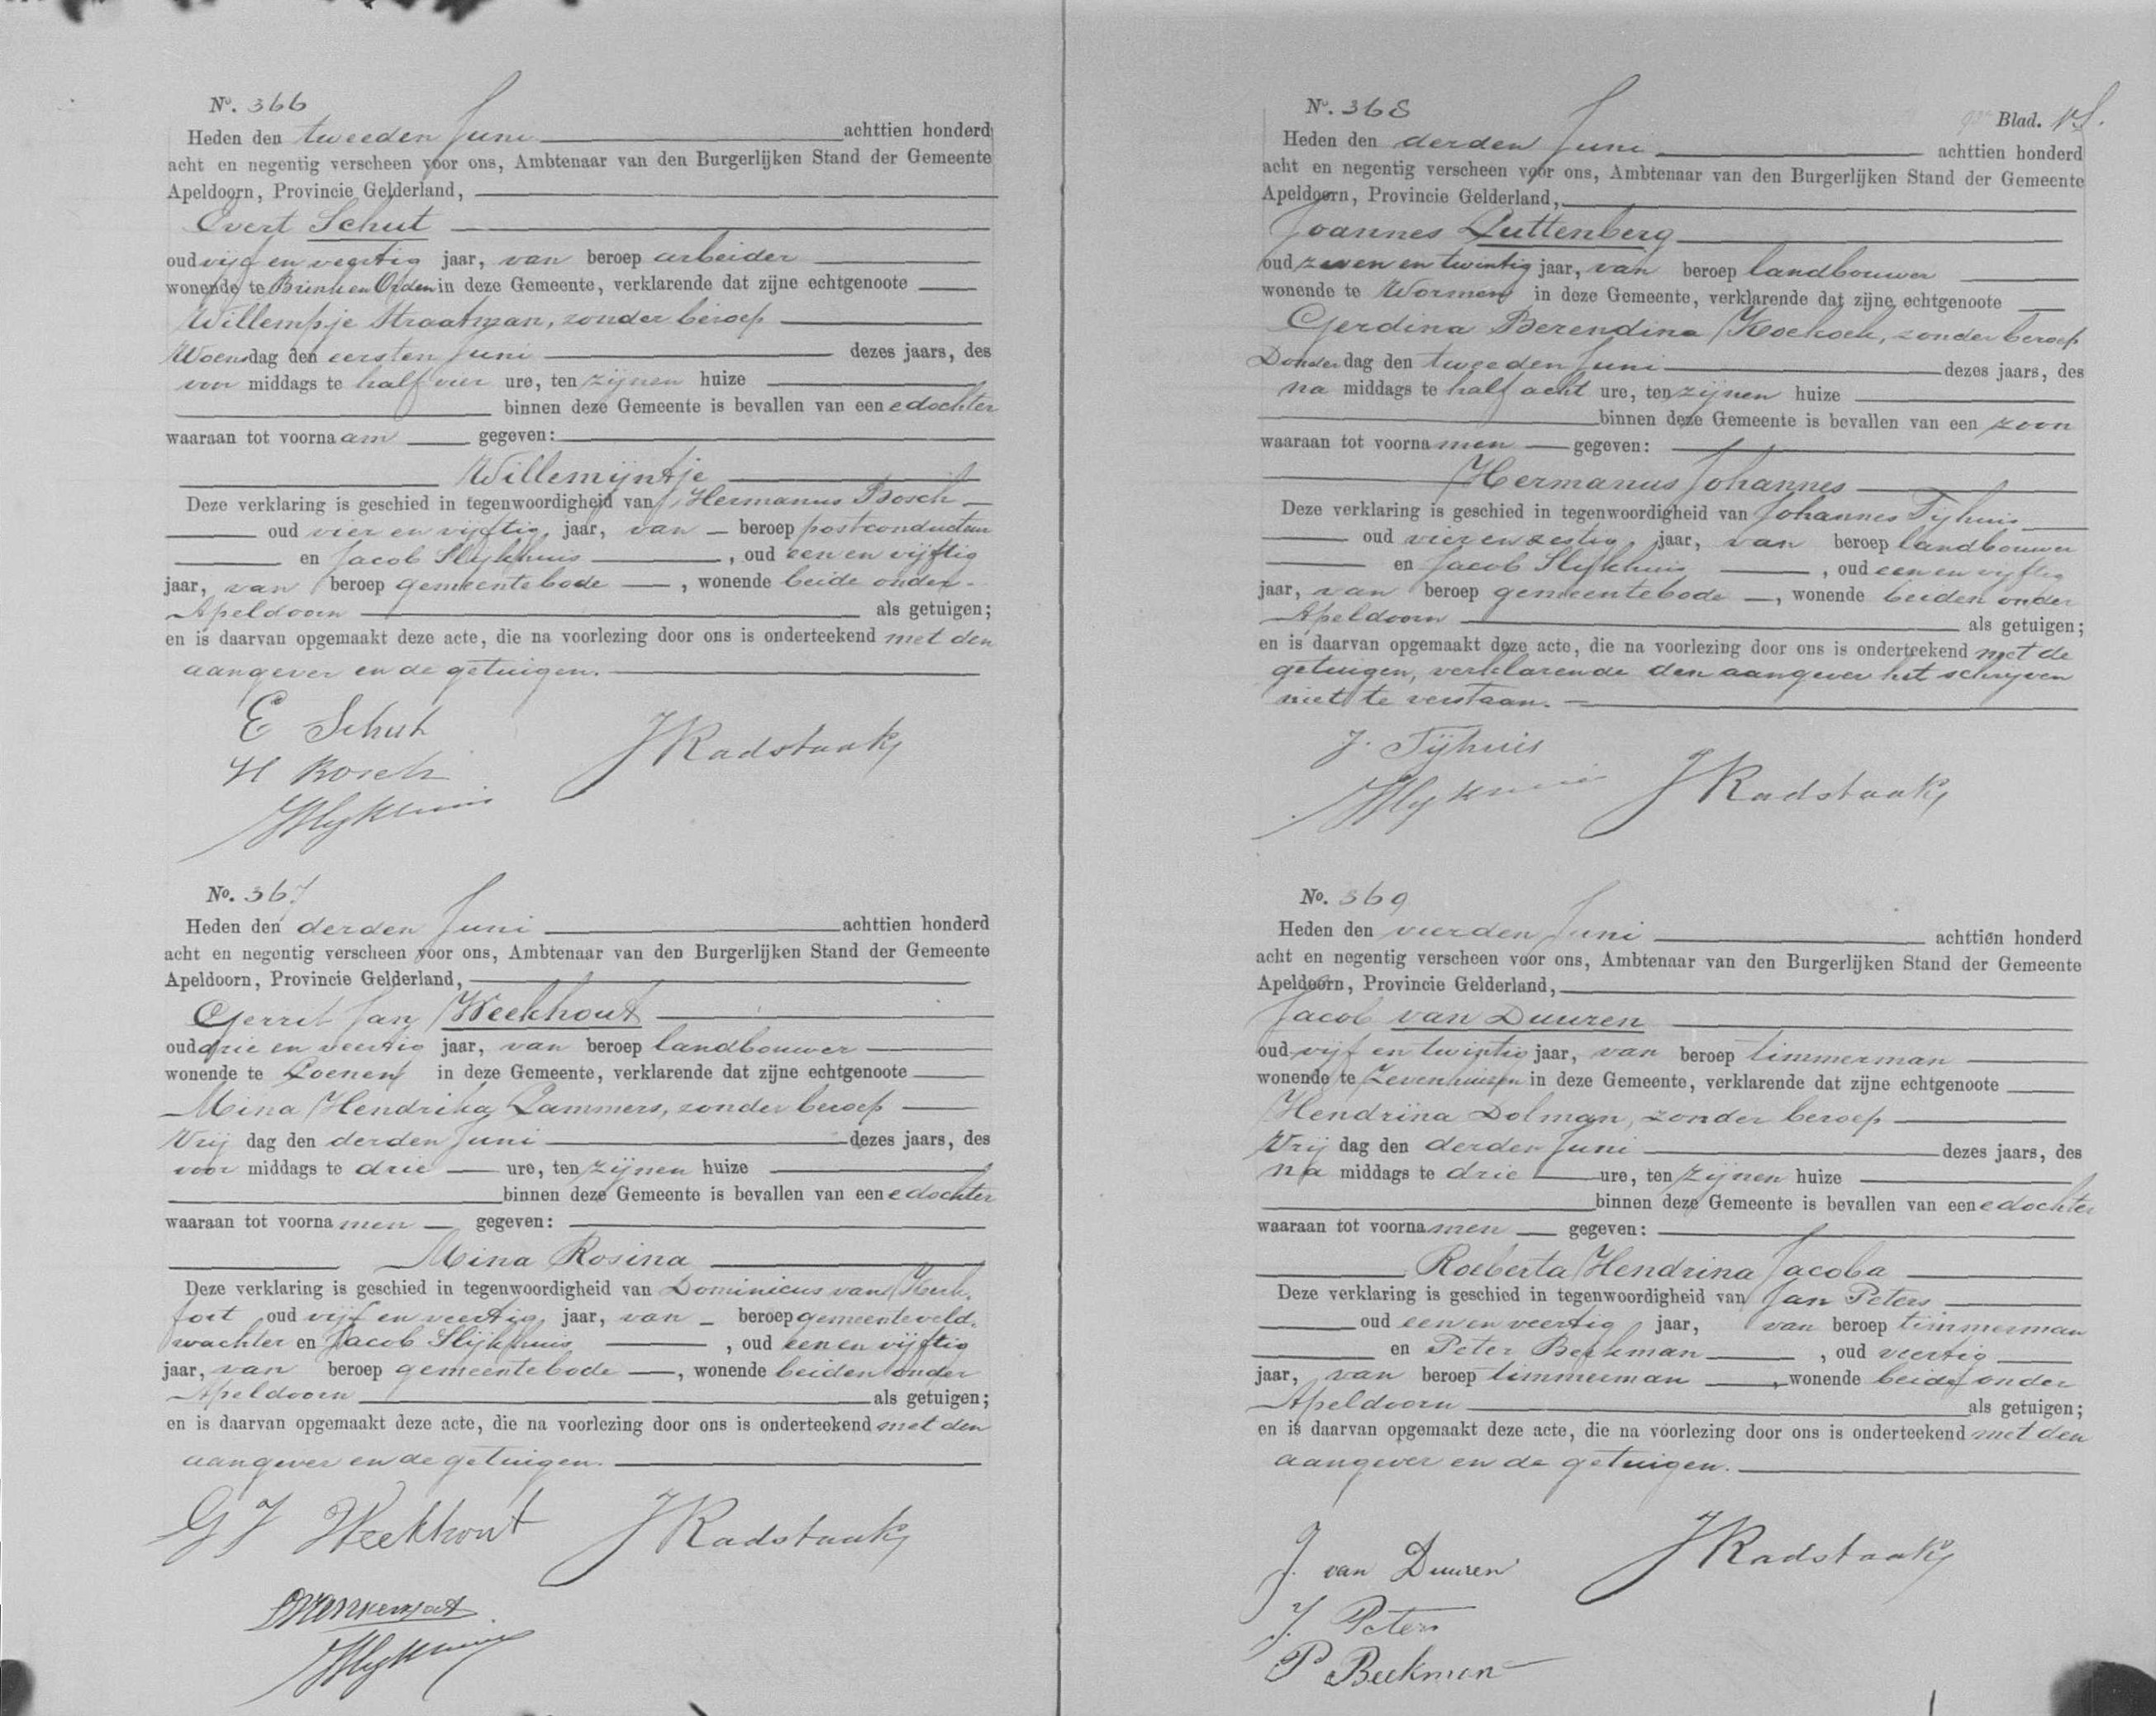 No. 366
Heden den tweeden Juni achttien honderd
acht en negentig verscheen voor ons, Ambtenaar van den Burgerlijken Stand der Gemeente
Apeldoorn, Provincie Gelderland,
Evert Schut
oud vijf en veertig jaar, van beroep arbeider
wonende te Brink en Orden in deze Gemeente, verklarende dat zijne echtgenoote
Willempje Straatman, zonder beroep
Woensdag den eersten Juni dezes jaars, des
voor middags te half vier ure, ten zijnen huize
binnen deze Gemeente is bevallen van eene dochter
waaraan tot voornaam gegeven:
Willemijntje
Deze verklaring is geschied in tegenwoordigheid van Hermanus Bosch
oud vier en vijftig jaar, van beroep postconducteur
en Jacob Slijkhuis, oud een en vijftig
jaar, van beroep gemeentebode, wonende beide onder
Apeldoorn als getuigen;
en is daarvan opgemaakt deze acte, die na voorlezing door ons is onderteekend met den
aangever en de getuigen.
E Schut
H Bosch
JSlykhuis
JRadstaak
No. 367
Heden den derden Juni achttien honderd
acht en negentig verscheen voor ons, Ambtenaar van den Burgerlijken Stand der Gemeente
Apeldoorn, Provincie Gelderland,
Gerrit Jan Weekhout
oud drie en veertig jaar, van beroep landbouwer
wonende te Loenen in deze Gemeente, verklarende dat zijne echtgenoote
Mina Hendrika Lammers, zonder beroep
Vrij dag den derden Juni dezes jaars, des
voor middags te drie ure, ten zijnen huize
binnen deze Gemeente is bevallen van eene dochter
waaraan tot voornamen gegeven:
Mina Rosina
Deze verklaring is geschied in tegenwoordigheid van Dominicus van
fort oud vijf en veertig jaar, van beroep gemeenteveld-
wachter en Jacob Slijkhuis, oud een en vijftig
jaar, van beroep gemeentebode, wonende beiden onder
Apeldoorn als getuigen;
en is daarvan opgemaakt deze acte, die na voorlezing door ons is onderteekend met den
aangever en de getuigen.
GJ Weekhout JRadstaak
JSlykhuis
No. 368
Blad.
Heden den derden Juni achttien honderd
acht en negentig verscheen voor ons, Ambtenaar van den Burgerlijken Stand der Gemeente
Apeldoorn, Provincie Gelderland,
Joannes Luttenberg
oud zeven en twintig jaar, van beroep landbouwer
wonende te Wormen in deze Gemeente, verklarende dat zijne echtgenoote
Gerdina Berendina Koekoek, zonder beroep
Donderdag den tweeden Juni dezes jaars, des
na middags te half acht ure, ten zijnen huize
binnen deze Gemeente is bevallen van een zoon
waaraan tot voornamen gegeven:
Hermanus Johannes
Deze verklaring is geschied in tegenwoordigheid van Johannes Tijhuis
oud vier en zestig jaar, van beroep landbouwer
en Jacob Slijkhuis, oud een en vijftig
jaar, van beroep gemeentebode, wonende beiden onder
Apeldoorn als getuigen;
en is daarvan opgemaakt deze acte, die na voorlezing door ons is onderteekend met de
getuigen, verklarende den aangever het schrijven
niet te verstaan.
J. Tijhuis
JSlykhuis JRadstaak
No. 369
Heden den vierden Juni achttien honderd
acht en negentig verscheen voor ons, Ambtenaar van den Burgerlijken Stand der Gemeente
Apeldoorn, Provincie Gelderland,
Jacob van Duuren
oud vijf en twintig jaar, van beroep timmerman
wonende te Zevenhuizen in deze Gemeente, verklarende dat zijne echtgenoote
Hendrina Dolman, zonder beroep
Vrij dag den derden Juni dezes jaars, des
na middags te drie ure, ten zijnen huize
binnen deze Gemeente is bevallen van eene dochter
waaraan tot voornamen gegeven:
Roeberta Hendrina Jacoba
Deze verklaring is geschied in tegenwoordigheid van Jan Peters
oud een en veertig jaar, van beroep timmerman
en Peter Beekman, oud veertig
jaar, van beroep timmerman, wonende beide onder
Apeldoorn als getuigen;
en is daarvan opgemaakt deze acte, die na voorlezing door ons is onderteekend met den
aangever en de getuigen.
J. van Duuren JRadstaak
J. Peters
P Beekman